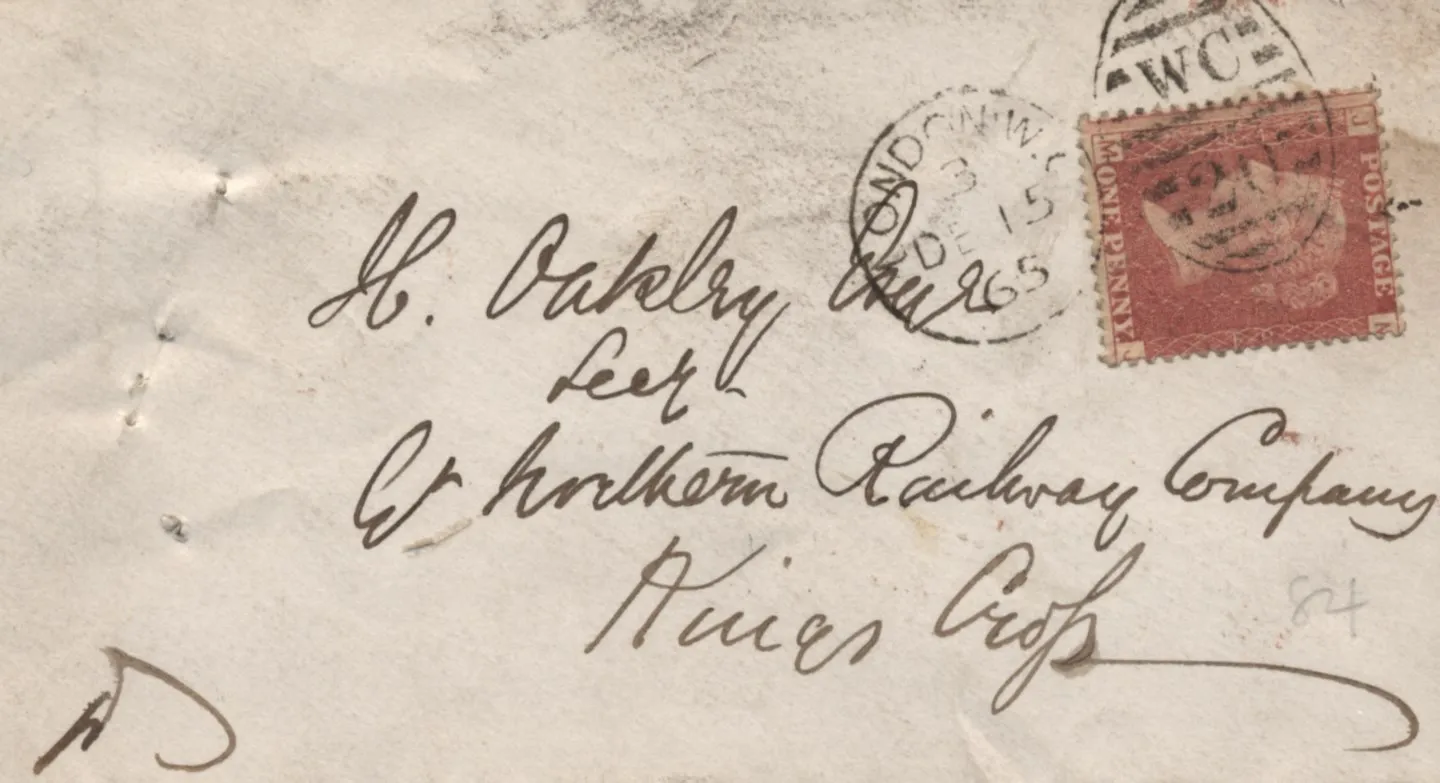 WC
LONDON W.C
3
DE 15
65
20
J
M
POSTAGE
ONE PENNY
M
J
H. Oakley Esqre
Secy -
Gt Northern Railway Company
Kings Cross
84